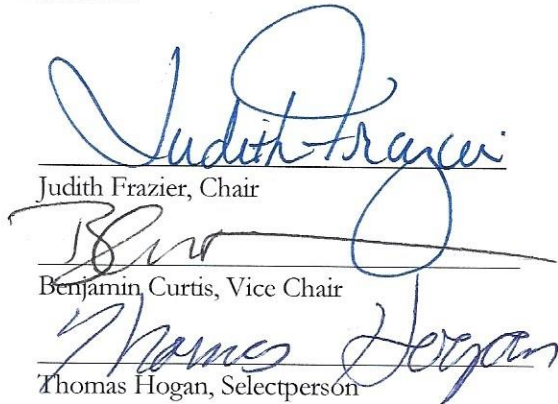 Judith Frazier
Judith Frazier, Chair
Benjamin Curtis, Vice Chair
Thomas Hogan
Thomas Hogan, Selectperson